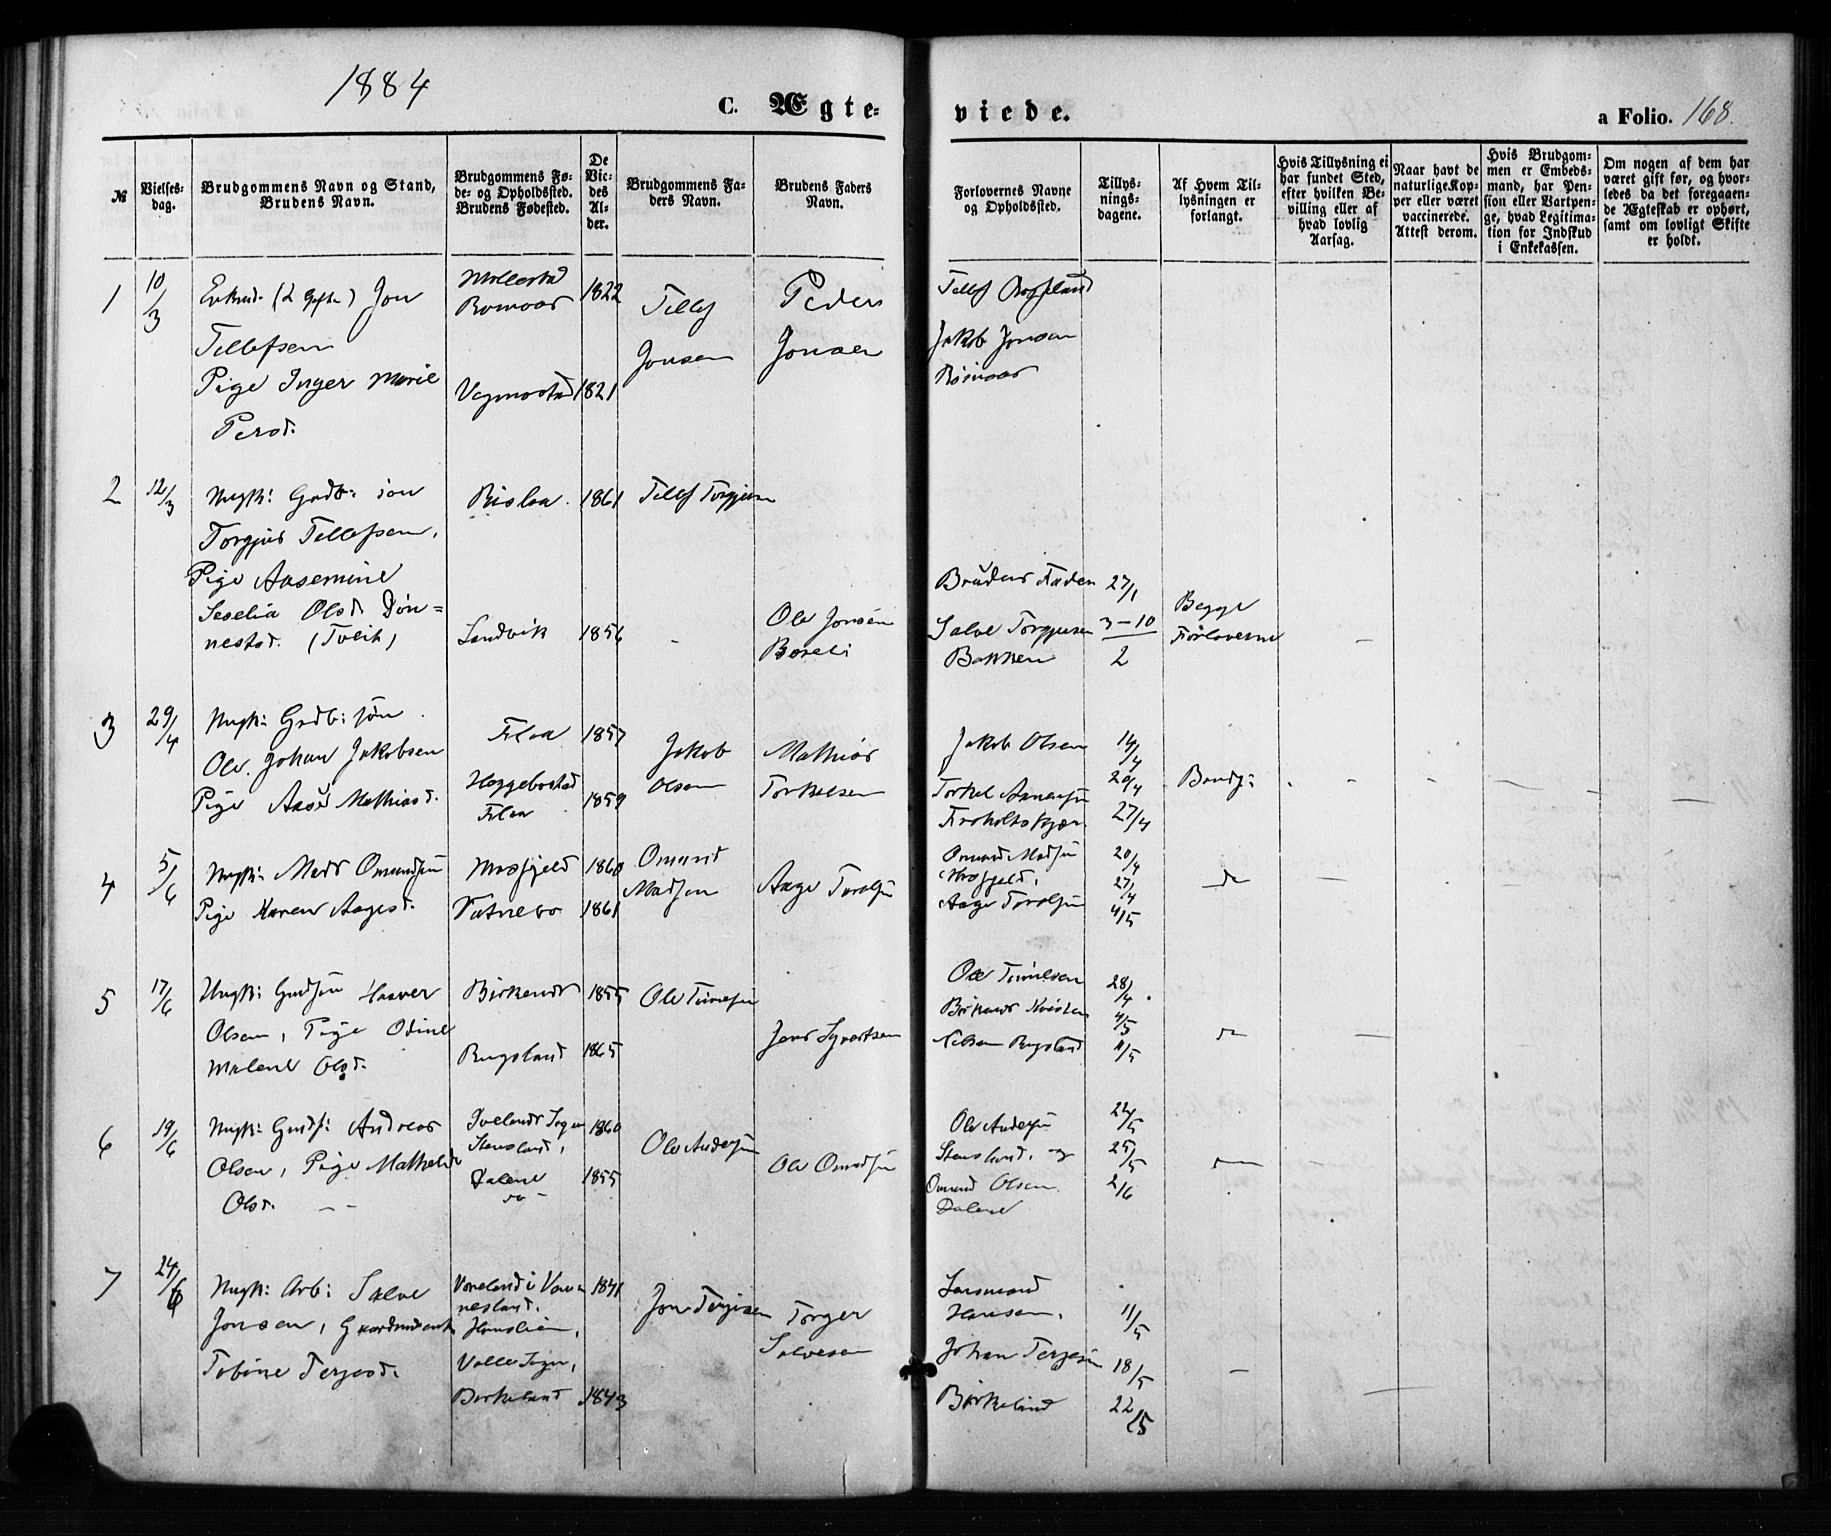 1884
C. Ægte-
viede.
a Folio. 168.
№
Vielses-
dag.
Brudgommens Navn og Stand,
Brudens Navn.
Brudgommens Fø-
de- og Opholdssted.
Brudens Fødested.
De
Vie-
des
Al-
der.
Brudgommens Fa-
ders Navn.
Brudens Faders
Navn.
Forlovernes Navne
og Opholdssted.
Tillys-
nings-
dagene.
Af Hvem Til-
lysningen er
forlangt.
Hvis Tillysning ei
har fundet Sted,
efter hvilken Be-
villing eller af
hvad lovlig
Aarsag.
Naar havt de
naturlige Kop-
per eller været
vaccinerede.
Attest derom.
Hvis Brudgom-
men er Embeds-
mand, har Pen-
sion eller Vartpen-
ge, hvad Legitima-
tion for Indskud
i Enkekassen.
Om nogen af dem har
været gift før, og hvor-
ledes da det foregaaen-
de Ægteskab er ophørt,
samt om lovligt Skifte
er holdt.
1
10/3
Enkem. (2 Gifte) Jon
Tellefsen
Pige Inger Marie
Persd.
Mollestad
Vegusstad
1822
1821
Tellef
Jonsen
Peder
Jonsen
Tellef
Jakob Jonsen
2
12/3
Ungk: Gdbr: søn
Torgjus Tellefsen.
Pige Aasemine
Seselia Olsd. Døn=
nestad. (Tveit)
Rislaa.
Landvik
1861
1856
Tellef Torgjusen
-
Ole Jonsen
Boreli
Brudens Fader
Salve Torgjusen
Bakken
27/1
3-10
2
Begge
Forloverne
-
3
29/4
Ungk: Grdb: søn
Ole Johan Jakobsen
Pige Aase Mathiasd.
Flaa
Heggebostad
Flaa
1857
1859
Jakob
Olsen
Mathias
Torkelsen
Jakob Olsen
Torkel Aanensen
14/4
20/4
27/4
Brudg:
4
5/6
Ungk: Mads Omundsen
Pige Karen Aagesd.
Mosfjeld
Vatnebo
1860
1861
Omund
Madsen
Aage Torolfsen
Omund Madsen
Mosfjeld,
Aage Torolfsen
20/4
27/4
4/5
do
5
17/6
Ungk: Grdsøn Haaver
Olsen, Pige Odine
Malene Olsd.
Birkenes
Rugsland
1855
1865
Ole Tomesen
Jens Syvertsen
Ole Tomesen
Birkenes Kristen
Nelsen Rugsland
28/4
4/5
11/5
do
6
19/6
Ungk: Grdsf: Andreas
Olsen, Pige Mathilde
Olsd. - -
Ivelands Sogn
Stensland,
Dalene
do -
1860
1855
Ole Andersen
Ole Omundsen
Ole Andersen
Stensland, og
Omund Olsen
Dalene
22/5
25/5
2/6
7
24/6
Ungk: Arb: Salve
Jonsen, Gaardmandsenke
Tobine Terjesd.
Voreland i Ven-
nesland.
Valle Sogn,
Birkeland
1841
1843
Jon Terjesen
Torger
Salvesen
Lensmand
Hansen,
Johan Terjesen
Birkeland
11/5
18/5
22/5
-